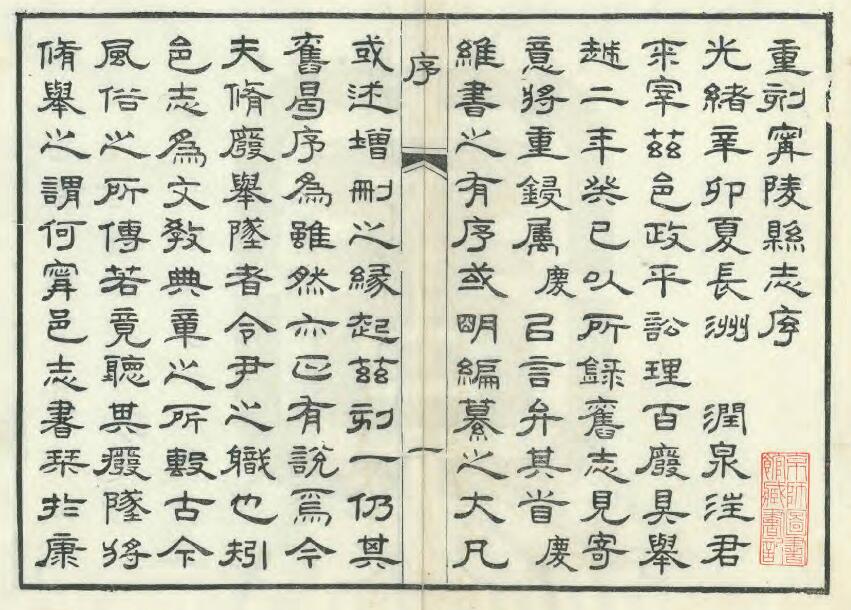 重刻甯陵縣志序
光緒辛卯夏長洲 潤泉汪君
來宰茲邑政平訟理百廢具舉
越二年癸巳以所録舊志見寄
意將重鋟属慶㠯言弁其首慶
維書之有序或明編纂之大凡
序 一
或述增刪之緣起茲刻一仍其
舊曷序爲雖然亦正有說焉今
夫脩廢舉墜者令尹之職也矧
邑志爲文敎典章之所繫古今
風俗之所傳若竟聽其廢墜將
脩舉之謂何甯邑志書栞於康
京師圖書
館藏書記